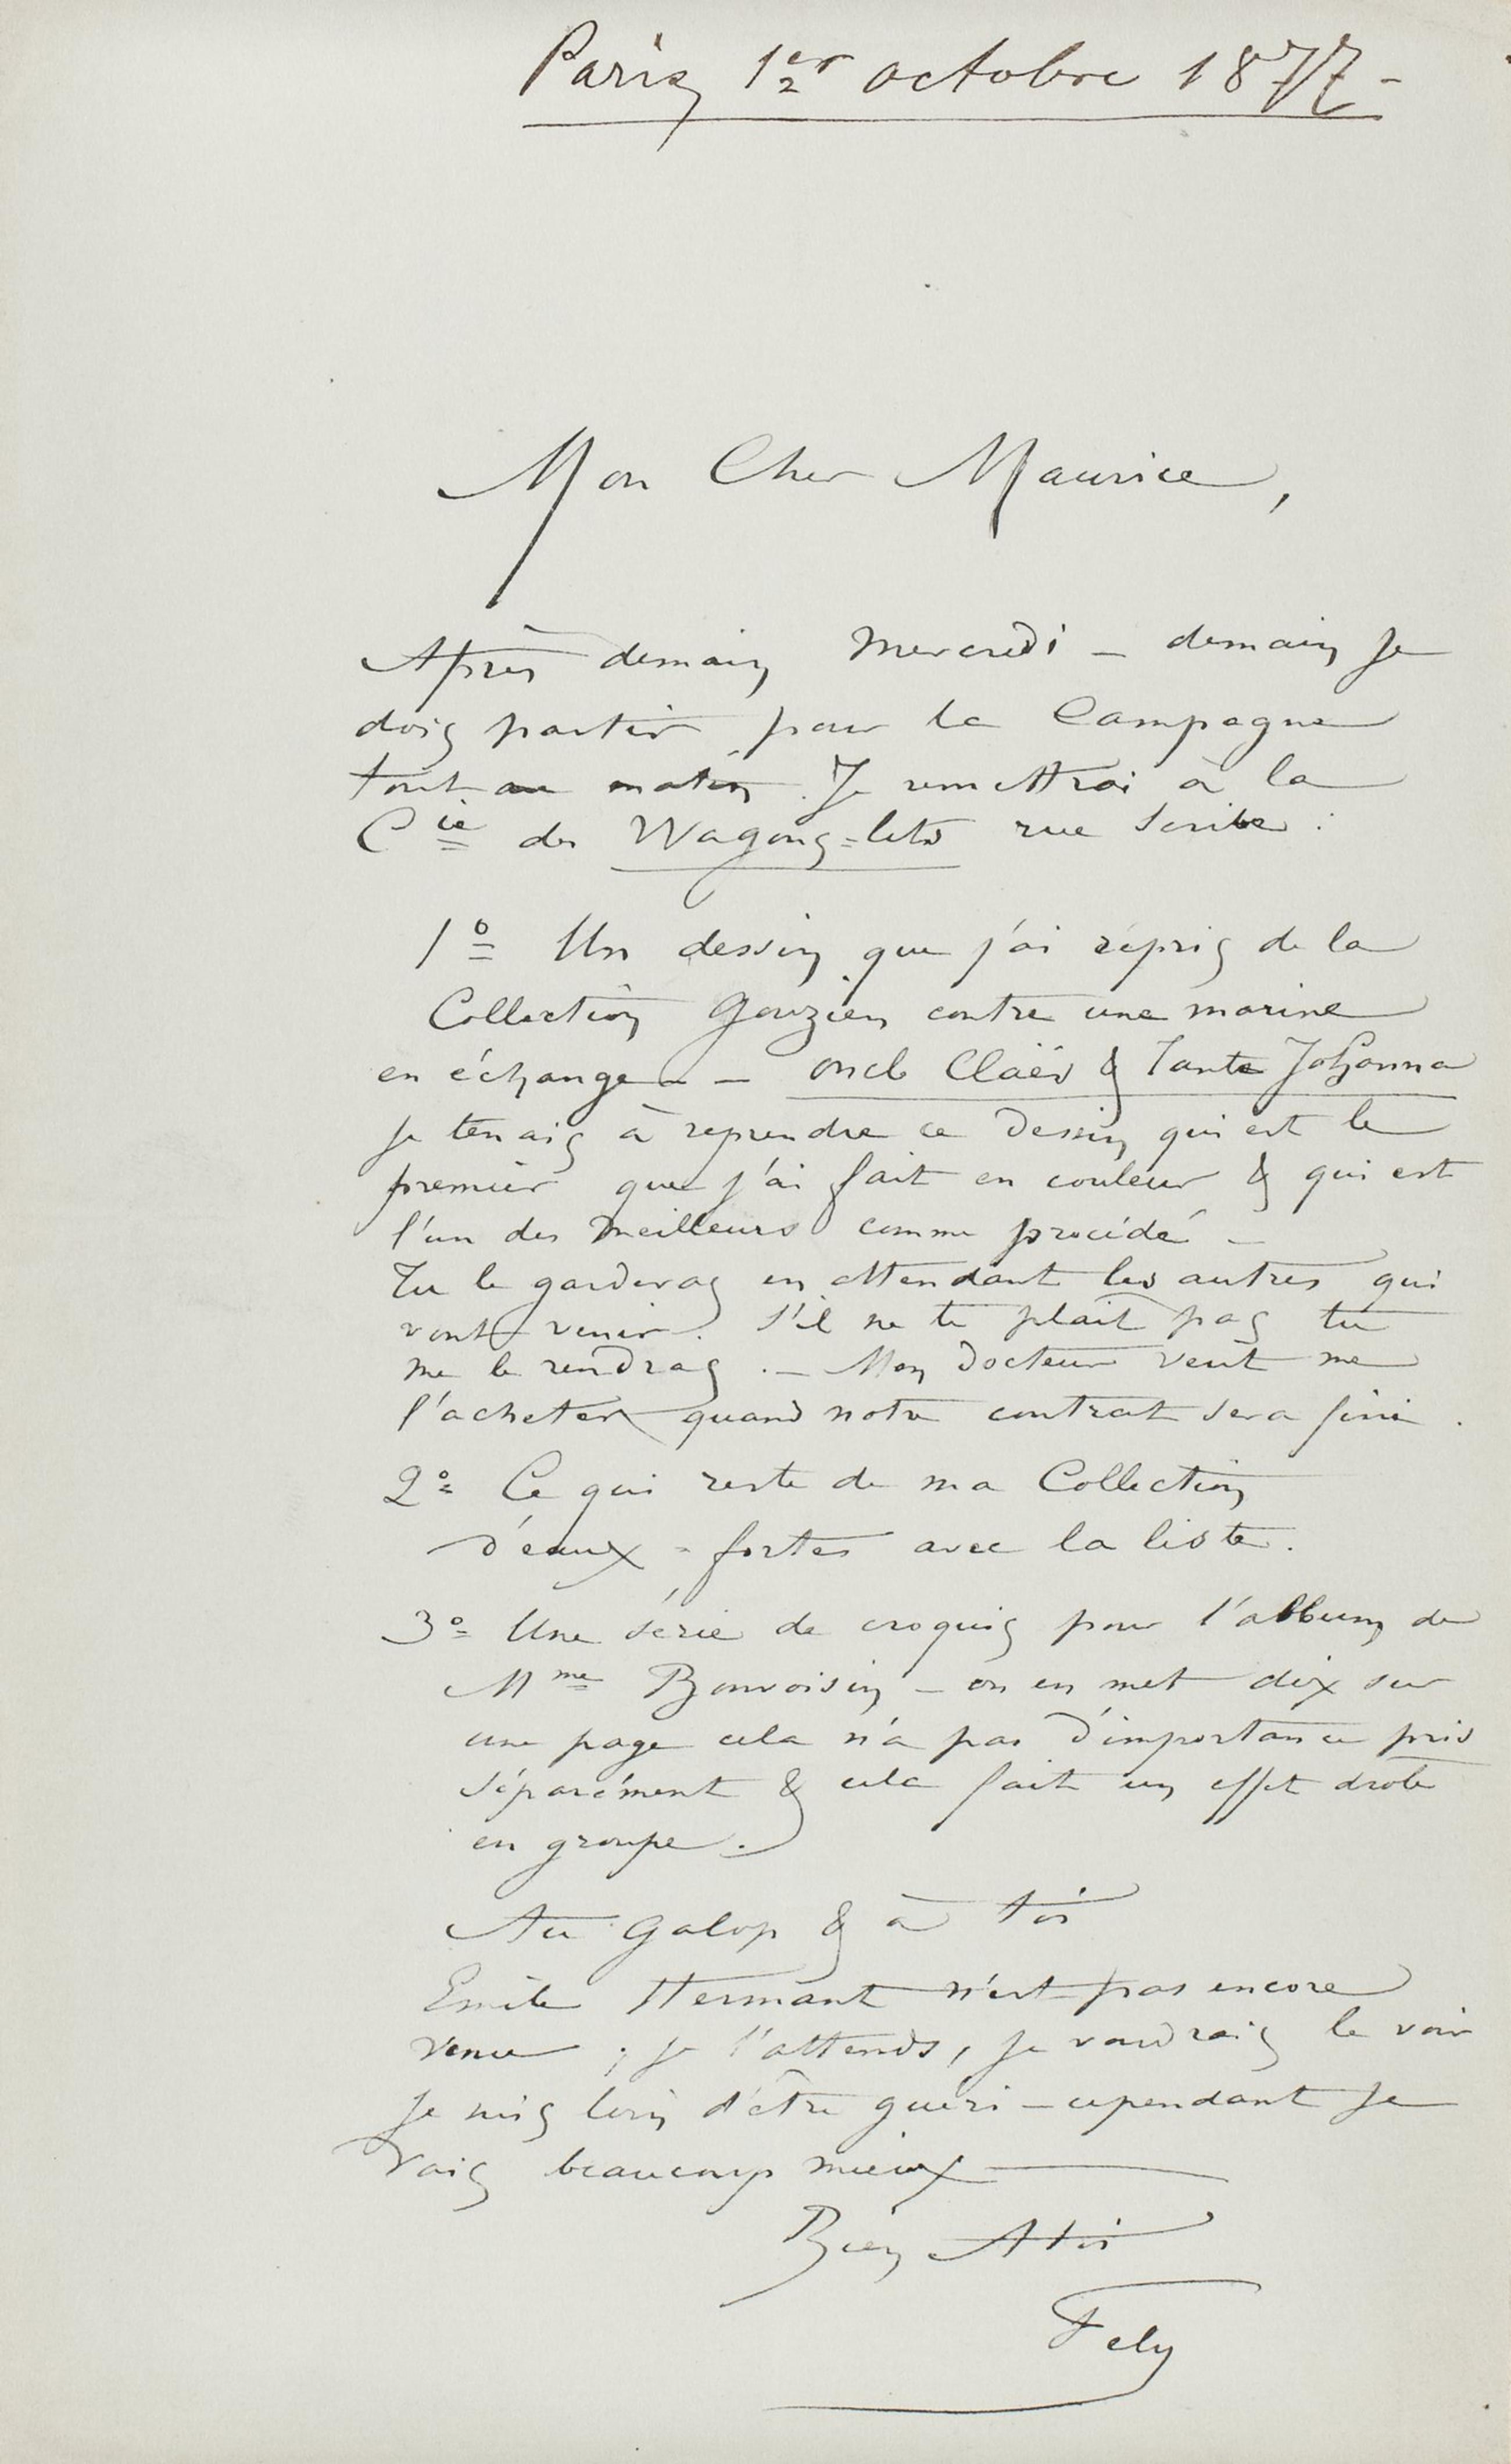 Paris 1er octobre 1877 -
Mon Cher Maurice,
Après demain Mercredi - demain je
dois partir pour la Campagne
tout au matin. Je remettrai à la
Cie des Wagons=lits rue Scribe :
1° Un dessin que j'ai repris de la
Collection Gouzien contre une marine
en échange - - Oncle Claës & Tante Johanna
je tenais à reprendre ce dessin qui est le
premier que j'ai fait en couleur & qui est
l'un des meilleurs comme procédé -
Tu le garderas en attendant les autres qui
vont venir. S'il ne te plait pas tu
me le rendras . - Mon docteur veut me
l'acheter quand notre contrat sera fini .
2° Ce qui reste de ma Collection
d'eaux=fortes avec la liste.
3° Une série de croquis pour l'album de
Mme Bonvoisin - on en met dix sur
une page cela n'a pas d'importance pris
séparément & cela fait un effet drôle
en groupe. -
Au Galop & à toi
Emile Hermant n'est pas encore
venu ; je l'attends, je voudrais le voir
Je suis loin d'être guéri - cependant je
vais beaucoup mieux
Bien A toi
Fely